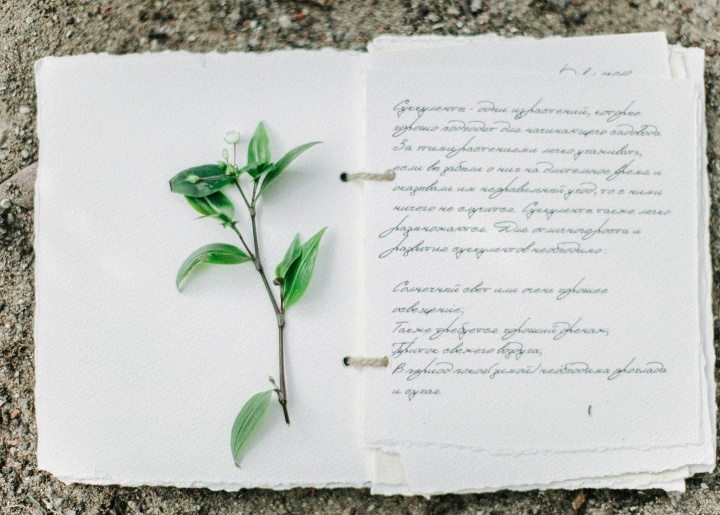 Суккуленты - одни из растений, которые
хорошо подходит для начинающего садовода.
За этими растениями легко ухаживать,
если вы забыли о них на длительное время и
оказывали им неправильный уход, то с ними
ничего не случится. Суккуленты также легко
размножаются. Для отличного роста и
развития суккулентов необходимо:
Солнечный свет или очень хорошее
освещение;
Также требуется хороший дренаж;
Приток свежего воздуха;
В период покоя (зимой) необходима прохлада
и сухая